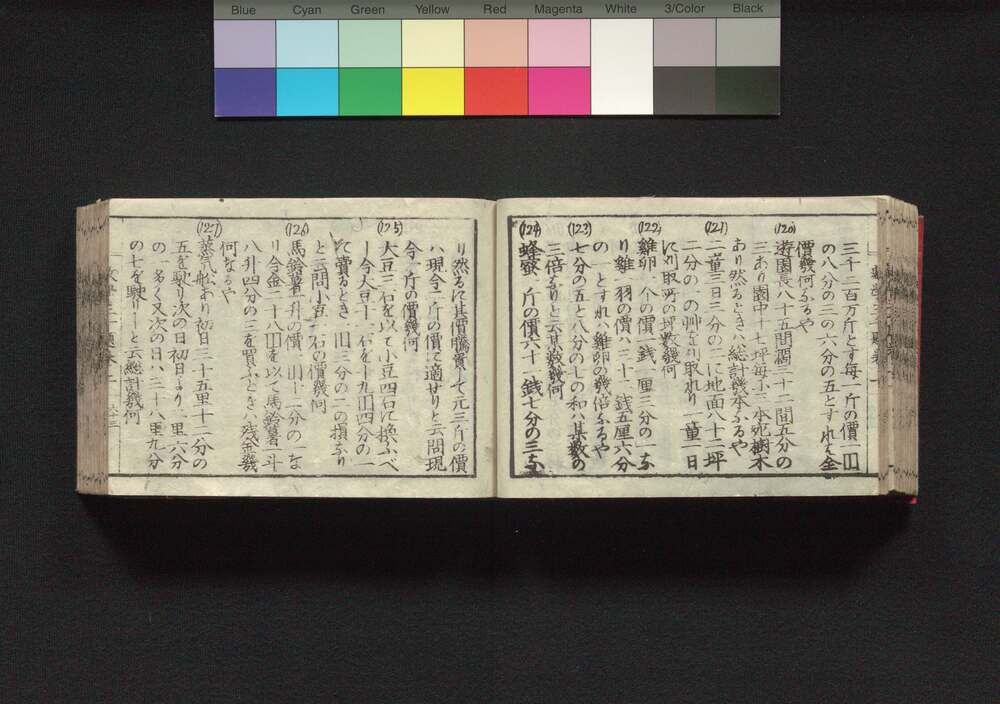 Blue Cyan Green Yellow Red Magenta White 3/Color Black
三千二百万斤とす毎一斤の價一円
の八分の三の六分の五とすれハ金
價幾何なるや
(120)
遊園長八十五間濶三十二間五分の
三あり園中十七坪毎ふ三本宛樹木
あり然るときハ総計幾本なるや
(121)
二童三日三分の二に地面八十二坪
二分の一の艸を刈取れり一童一日
に刈取所の坪数幾何
(122)
雞卵一个の價一銭一厘三分の一な
り雞一羽の價ハ三十二銭五厘六分
の一とすれハ雞卵の幾倍なるや
(123)
七分の五と八分の七の和ハ某数の
三倍なりと云某数幾何
(124)
蜂蜜一斤の價六十一銭七分の三な
り然るに其價騰貴して元三斤の價
ハ現今二斤の價に適せりと云問現
今一斤の價幾何
(125)
大豆三石を以て小豆四石に換ふべ
し今大豆十二石を十九円四分の一
に賣るとき一円三分の一の損なり
と云問小豆一石の價幾何
(126)
馬鈴薯一升の價一円十二分の一な
り今金二十八円を以て馬鈴薯一斗
八升四分の三を買ふときハ残金幾
何なるや
(127)
蒸気舩あり初日三十五里十二分の
五を駛り次の日初日より二里六分
の一多く又次の日ハ三十八里九分
の七を駛りしと云総計幾何